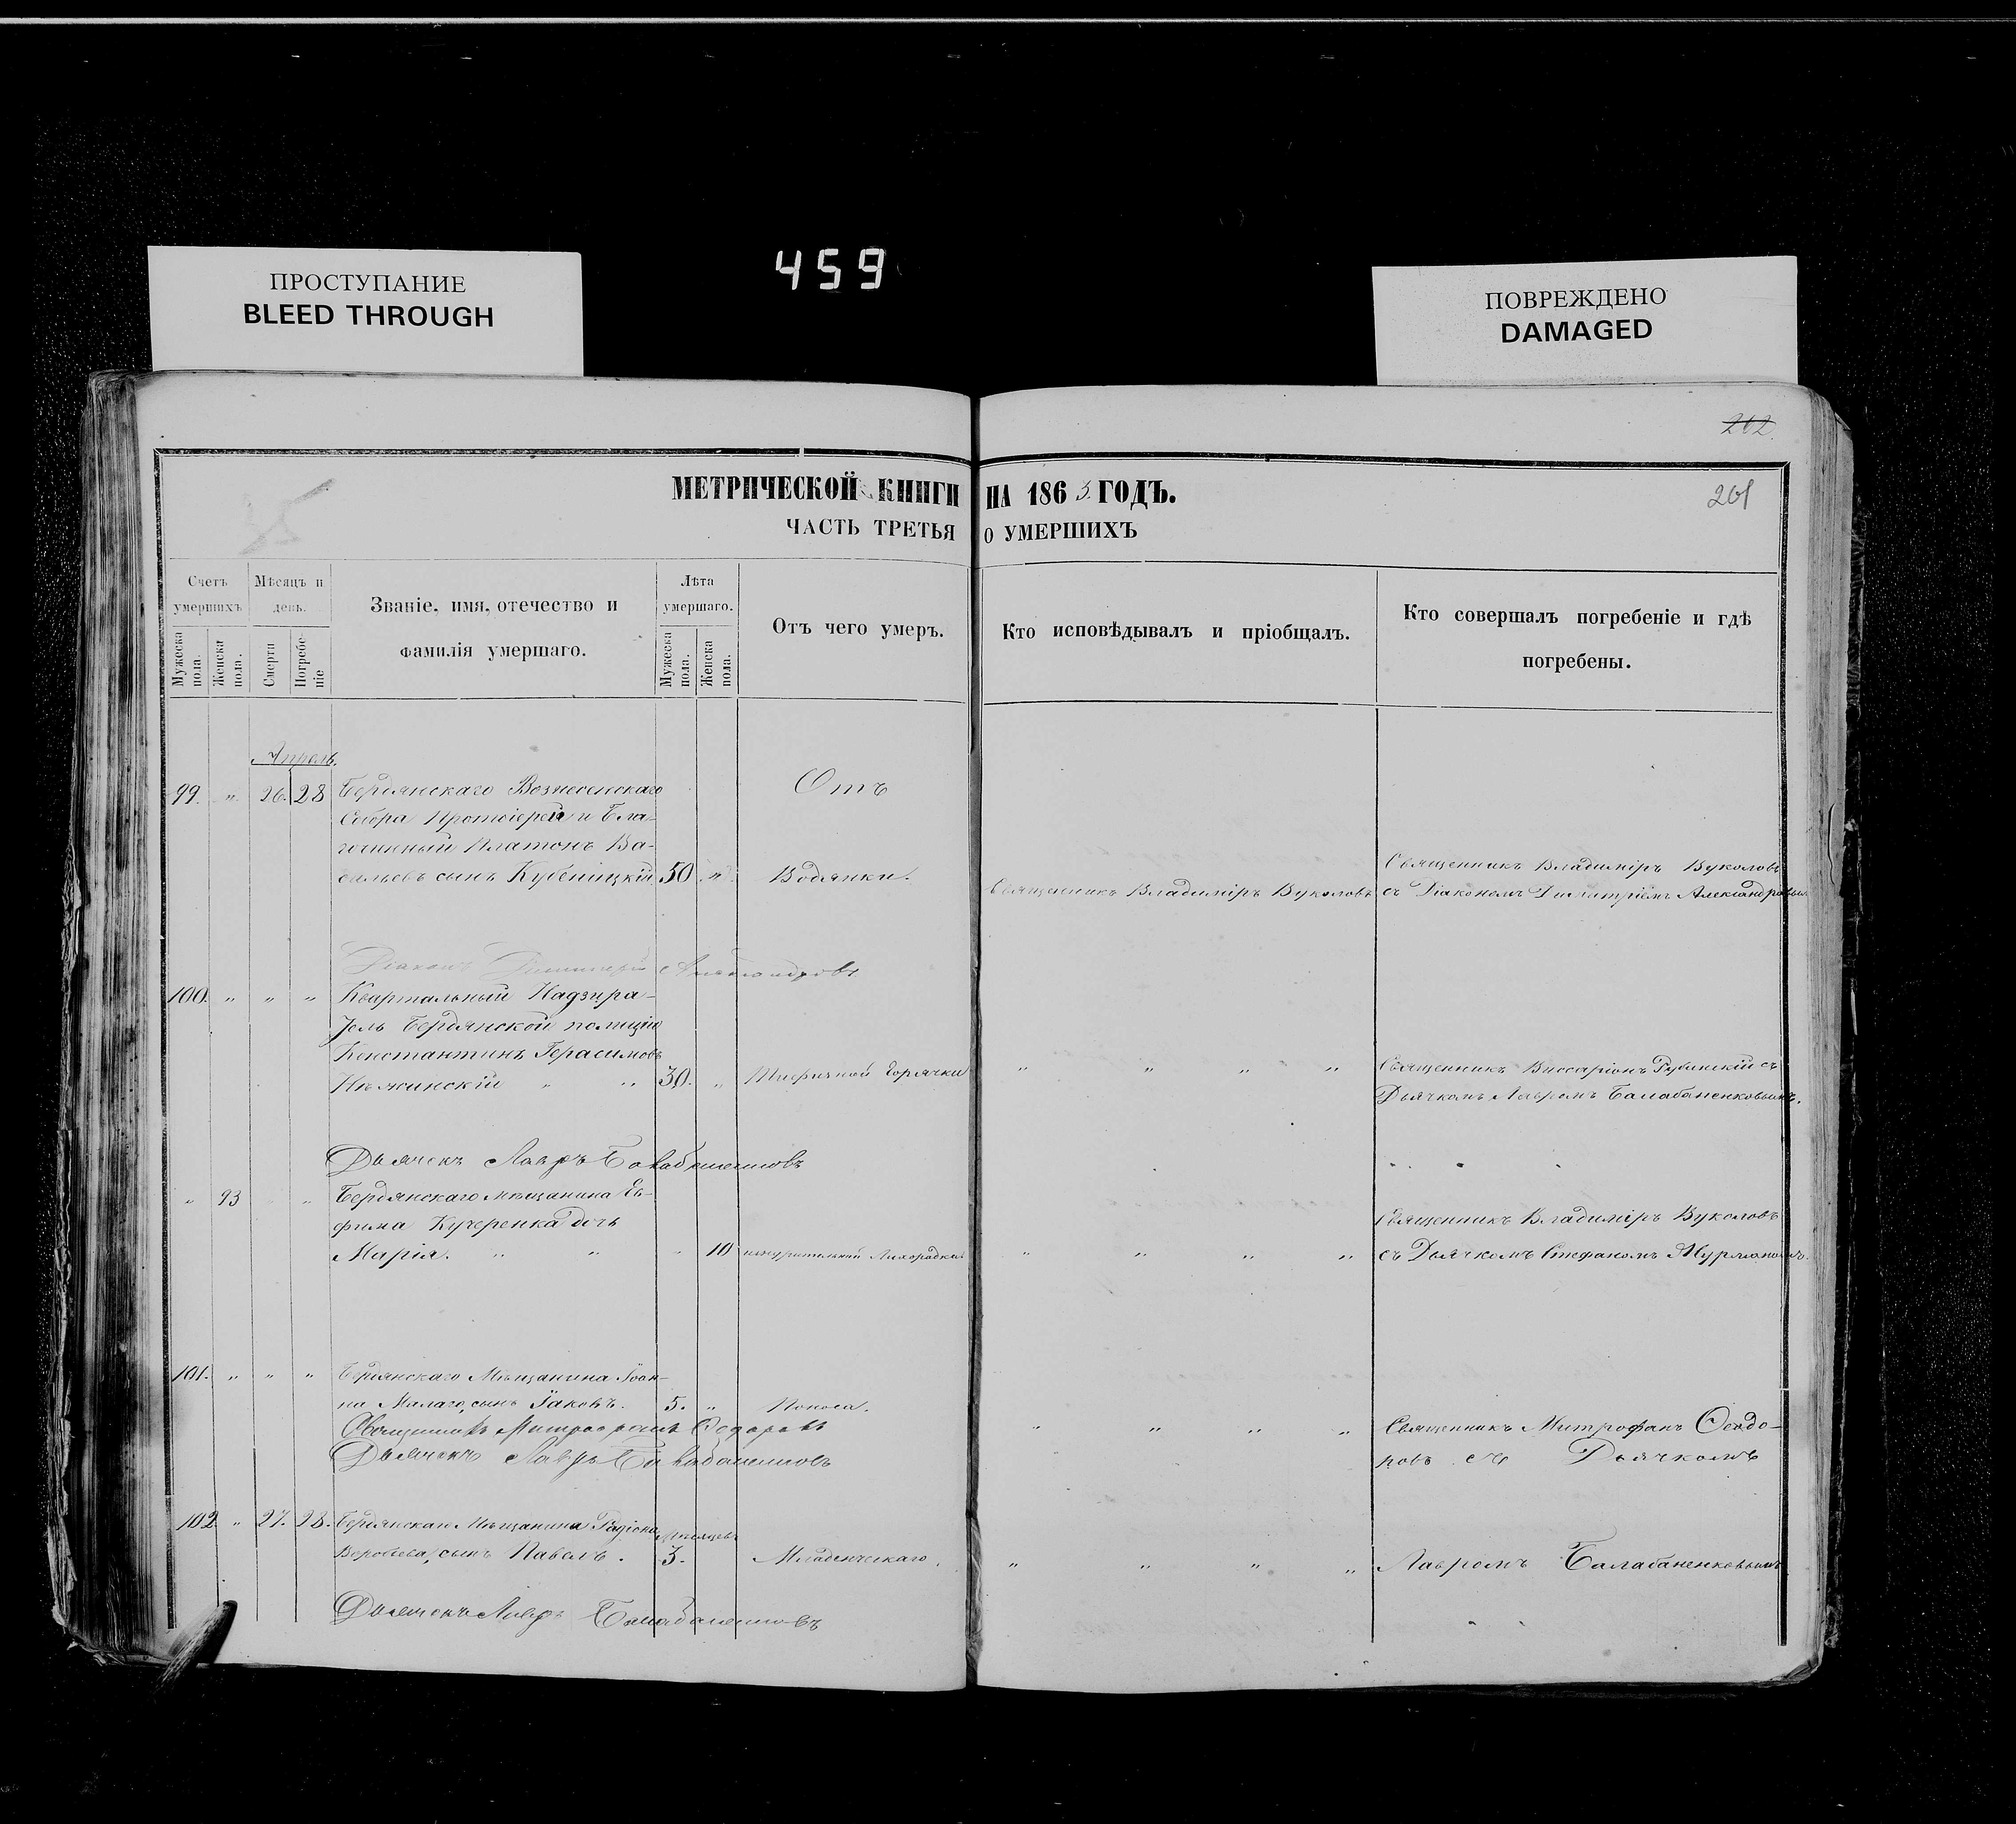 ПРОСТУПАНИЕ
BLEED THROUGH
459
ПОВРЕЖДЕНО
DAMAGED
202.
201
МЕТРИЧЕСКОЙ КНИГИ НА 1863. ГОДЪ.
ЧАСТЬ ТРЕТЬЯ О УМЕРШИХЪ
Счетъ умершихъ
Мужеска пола.
Женска пола.
Мѣсяцъ и день.
Смерти
Погребеніе
Званіе, имя, отечество и
фамилія умершаго.
Лѣта умершаго.
Мужеска пола.
Женска пола.
Отъ чего умеръ.
Кто исповѣдывалъ и пріобщалъ.
Кто совершалъ погребеніе и гдѣ
погребены.
Апрель.
99. " 26. 28 Бердянскаго Вознесенскаго Отъ
Собора Протоіерей и Бла-
гочинный Платонъ Ва-
сильевъ сынъ Кубеницкій 50 " Водянки.
Священникъ Владиміръ Вуколовъ
Священникъ Владиміръ Вуколовъ
съ Діакономъ Димитріемъ Александровым
Діаконъ Димитрій Александровъ
100. " " " Квартальный Надзира-
тель Бердянской полиціи
Константинъ Герасимовъ
Нѣжинскій " " 30. " Тифичной Горячки " " " "
Священникъ Виссаріонъ Рубинскій съ
Дьячкомъ Лавромъ Балабаненковымъ.
Дьячекъ Лавръ Балабаненковъ
" 93 " Бердянскаго мѣщанина Ев-
фима Кучеренка дочь
Марія. " " " 10 изнурительной Лихорадки " " " "
Священникъ Владиміръ Вуколовъ
съ Дьячкомъ Стефаномъ Мурманомъ.
101. " " " Бердянскаго Мѣщанина Іоан-
на Малаго, сынъ Іаковъ. 5. " Поноса. " " " "
Священникъ Митрофанъ Ѳедоровъ
Дьячекъ Лавръ Балабаненковъ
Священникъ Митрофанъ Ѳеодо-
ровъ съ Дьячкомъ
102. " 27. 28. Бердянскаго Мѣщанина Радіона мѣсяцевъ
Воробьева, сынъ Павелъ. 3. Младенческаго. " " " "
Лавромъ Балабаненковымъ
Дьячекъ Лавръ Балабаненковъ